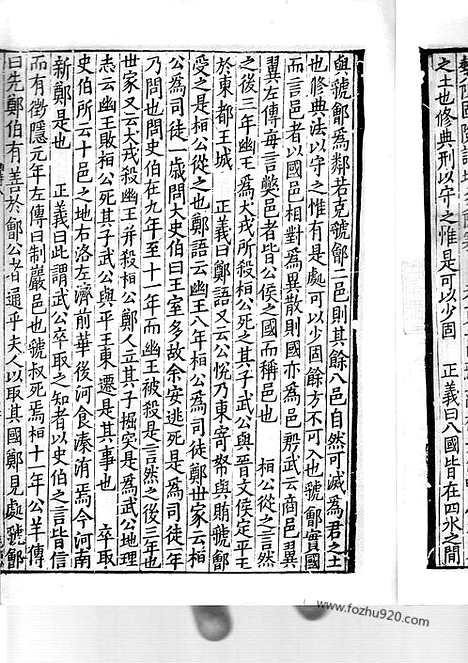 之土也修典刑以守之惟是可以少固　正義曰八國皆在四水之間
與虢鄶爲鄰若克虢鄶二邑則其餘八邑自然可滅爲君之土
也修典法以守之惟有是處可以少固餘方不可入也虢鄶實國
而言邑者以國邑相對爲異散則國亦爲邑殷武云商邑
翼翼左傳每言獘邑者皆公侯之國而稱邑也　桓公從之言然
之後三年幽王爲犬戎所殺桓公死之其子武公與晉文侯定平王
於東都王城　正義曰鄭語又云公悅乃東寄帑與賄虢鄶
受之是桓公從之也鄭語云幽王八年桓公爲司徒鄭世家云桓
公爲司徒一歲問大史伯曰王室多故余安逃死是爲司徒一年
乃問也問史伯在九年至十一年而幽王被殺是言然之後三年也
世家又云犬戎殺幽王并殺桓公鄭人立其子掘突是爲武公地理
志云幽王敗桓公死其子武公與平王東遷是其事也　卒取
史伯所云十邑之地右洛左濟前華後河食溱洧焉今河南
新鄭是也　正義曰此謂武公卒取之知者以史伯之言皆信
而有徵隱元年左傳曰制巖邑也虢叔死焉桓十一年公羊傳
曰先鄭伯有善於鄶公者通乎夫人以取其國鄭見處虢鄶
www.fozhu920.com